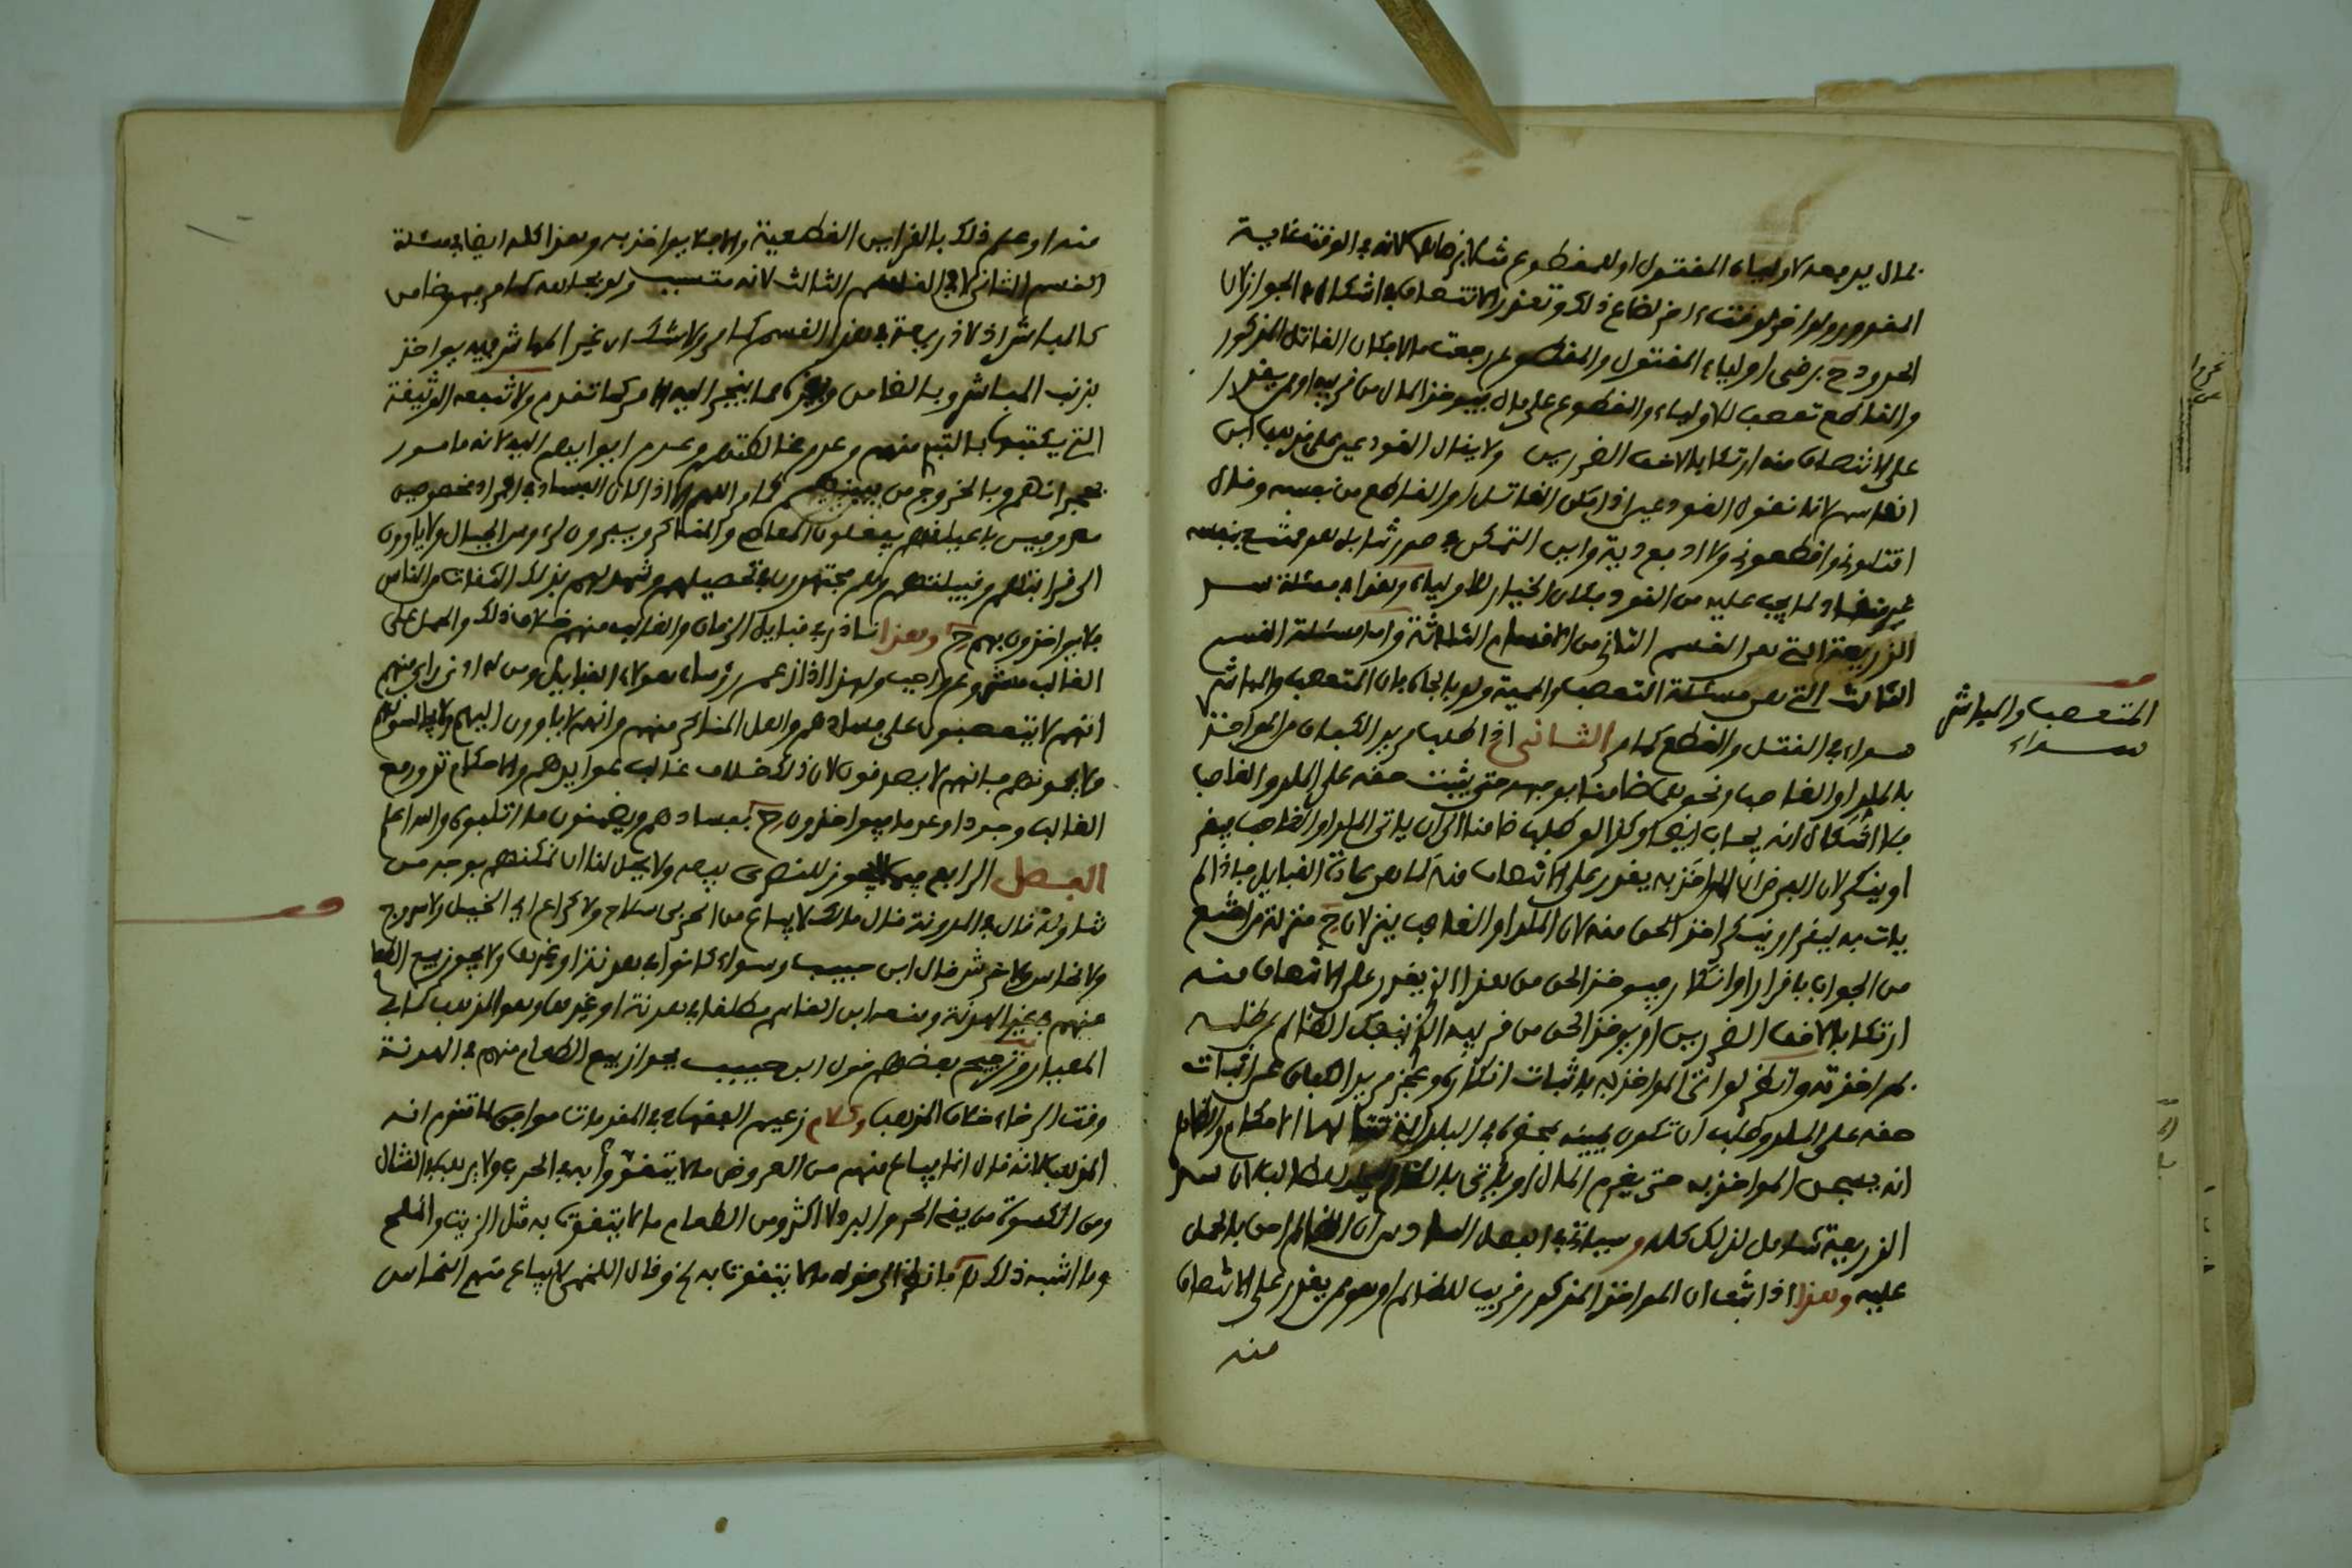 بمال يدفعه لاولياء المقتول او للمقطوع مثلا لانه في الوقت غاية
المقدور ولو اخر لوقت اخر لضاع ذلك وتعذر الانتصاف ولا اشكال في الجواز لان
الحدود ح برضى اولياء المقتول والمقطوع رجعت مالا فكان القاتل المذكور
والقاطع تعصب للاولياء والمقطوع على مال فيوخذ المال من قريبه او ممن يقدر
على الانتصاف منه ارتكابا لاخف الضررين ولا يقال القود عين على مذهب ابن
القاسم لانا نقول القود عين اذا مكن القاتل او القاطع من نفسه وقال
اقتلوني او اقطعوني ولا ادفع دية واين التمكن في صورتنا بل هو ممتنع بنفسه
غير منقاد لما يجب عليه من القود فكان الخيار للاولياء وهذا في مسئلة سد
الذريعة التي هي القسم الثاني من الاقسام الثلاثة واما مسئلة القسم
الثالث التي هي مسئلة التعصب والحمية ولو بالجاه فان المتعصب والمباشر
سواء في القتل والقطع كما مر الثاني اذا طلب مريد الكفاف من المواخذ
بالملد او الغاصب ونحوهما ضامنا بوجهه حتى يثبت حقه على الملد والغاصب
فلا اشكال انه يجاب ايضا وكذا لو طلب ضامنا الى ان ياتي الملد او الغاصب فيقر
او ينكر لان الفرض ان المواخذ به يقدر على الانتصاف منه كما هي عادة القبايل فاذا لم
يات به ليقر او ينكر اخذ الحق منه لان الملد او الغاصب ينزلان ح منزلة من امتنع
من الجواب باقرار او انكار فيوخذ الحق من هذا الذي يقدر على الانتصاف منه
ارتكابا لاخف الضررين او يوخذ الحق من قريبه الذي ينفك الظالم عن ظلمه
بمواخذته وانظر لو اتى المواخذ به باثبات انكاره وعجز مريد الكفاف عن اثبات
حقه على الملد وطلب ان تكون يمينه بحضوره في البلد الذي تناله الاحكام والظاهر
انه يسجن المواخذ به حتى يغرم المال او ياتي بالظالم للطالب لان سد
الذريعة شامل لذلك كله وسياتي في الفصل السادس ان الظالم احق بالحمل
عليه وهذا اذا ثبت ان المواخذ المذكور قريب للظالم او هو ممن يقدر على الانتصاف
منه
المتعصب والمباشر
سواء
منه او علم ذلك بالقراين القطعية والا فلا يواخذ به وهذا كله ايضا في مسئلة
القسم الثاني لا في القسم الثالث لانه متسبب ولو بجاهه كما مر فهو ضامن
كالمباشر اذ لا ذريعة في هذا القسم كما مر ولا شك ان غير المباشر فيه يواخذ
بذنب المباشر وبالضامن وغيره مما ينجر اليه الامر كما تقدم ولا تنفعه الوثيقة
التي يكتبها بالتبري منهم وعدم مخالطتهم وعدم ايوايهم اليه لانه مامور
بهجرانهم وبالخروج من بينهم كما مر اللهم الا اذا كان الفساد في افراد مخصوصين
معروفين باعيانهم يفعلون المعاصي والمناكر ويسيرون لرءوس الجبال ولا ياوون
الى قرابتهم وقبيلتهم وهم مجتهدون في تحصيلهم وشهد لهم بذلك الثقات من الناس
فلا يواخذون بهم ح وهذا نادر في قبايل الزمان والغالب منهم خلاف ذلك والحمل على
الغالب مشروع واجب ولهذا اذا زعم رؤساء هؤلاء القبايل ومن له ادنى راي منهم
انهم لا يتعصبون على فسادهم واهل المناكر منهم وانهم لا ياوون اليهم ولا يجالسونهم
ولا يحمونهم فانهم لا يصدقون لان ذلك خلاف غالب عوايدهم والاحكام تدور مع
الغالب وجودا وعدما فيواخذون ح بفسادهم ويضمنون ما اتلفوه والله اعلم
الفصل الرابع فيما يجوز للنصرى بيعه ولا يحل لنا ان نمكنهم بوجه من
شاونه قال في المدونة قال مالك لا يباع من الحربي سلاح ولا كراع اي الخيل ولا سروج
ولا نحاس ولا خرثي قال ابن حبيب وسواء كانوا في هدنة او غيرها ولا يجوز بيع الطعام
منهم في غير الهدنة ومنعه ابن القاسم مطلقا في هدنة او غيرها وهو المذهب كما في
المعيار وترجيح بعضهم قول ابن حبيب بجواز بيع الطعام منهم في الهدنة
وقت الرخاء خلاف المذهب وكلام زعيم الفقهاء في المقدمات موافق لما تقدم انه
المذهب لانه قال انما يباع منهم من العروض ما لا يتقوون به في الحرب ولا يرهب في القتال
ومن الكسوة ما يقي الحر والبرد لا اكثر ومن الطعام ما لا يتقوون به مثل الزيت والملح
وما اشبه ذلك فانظر الى قوله ما لا يتقوون به الخ وقال اللخمي لا يباع منهم النحاس